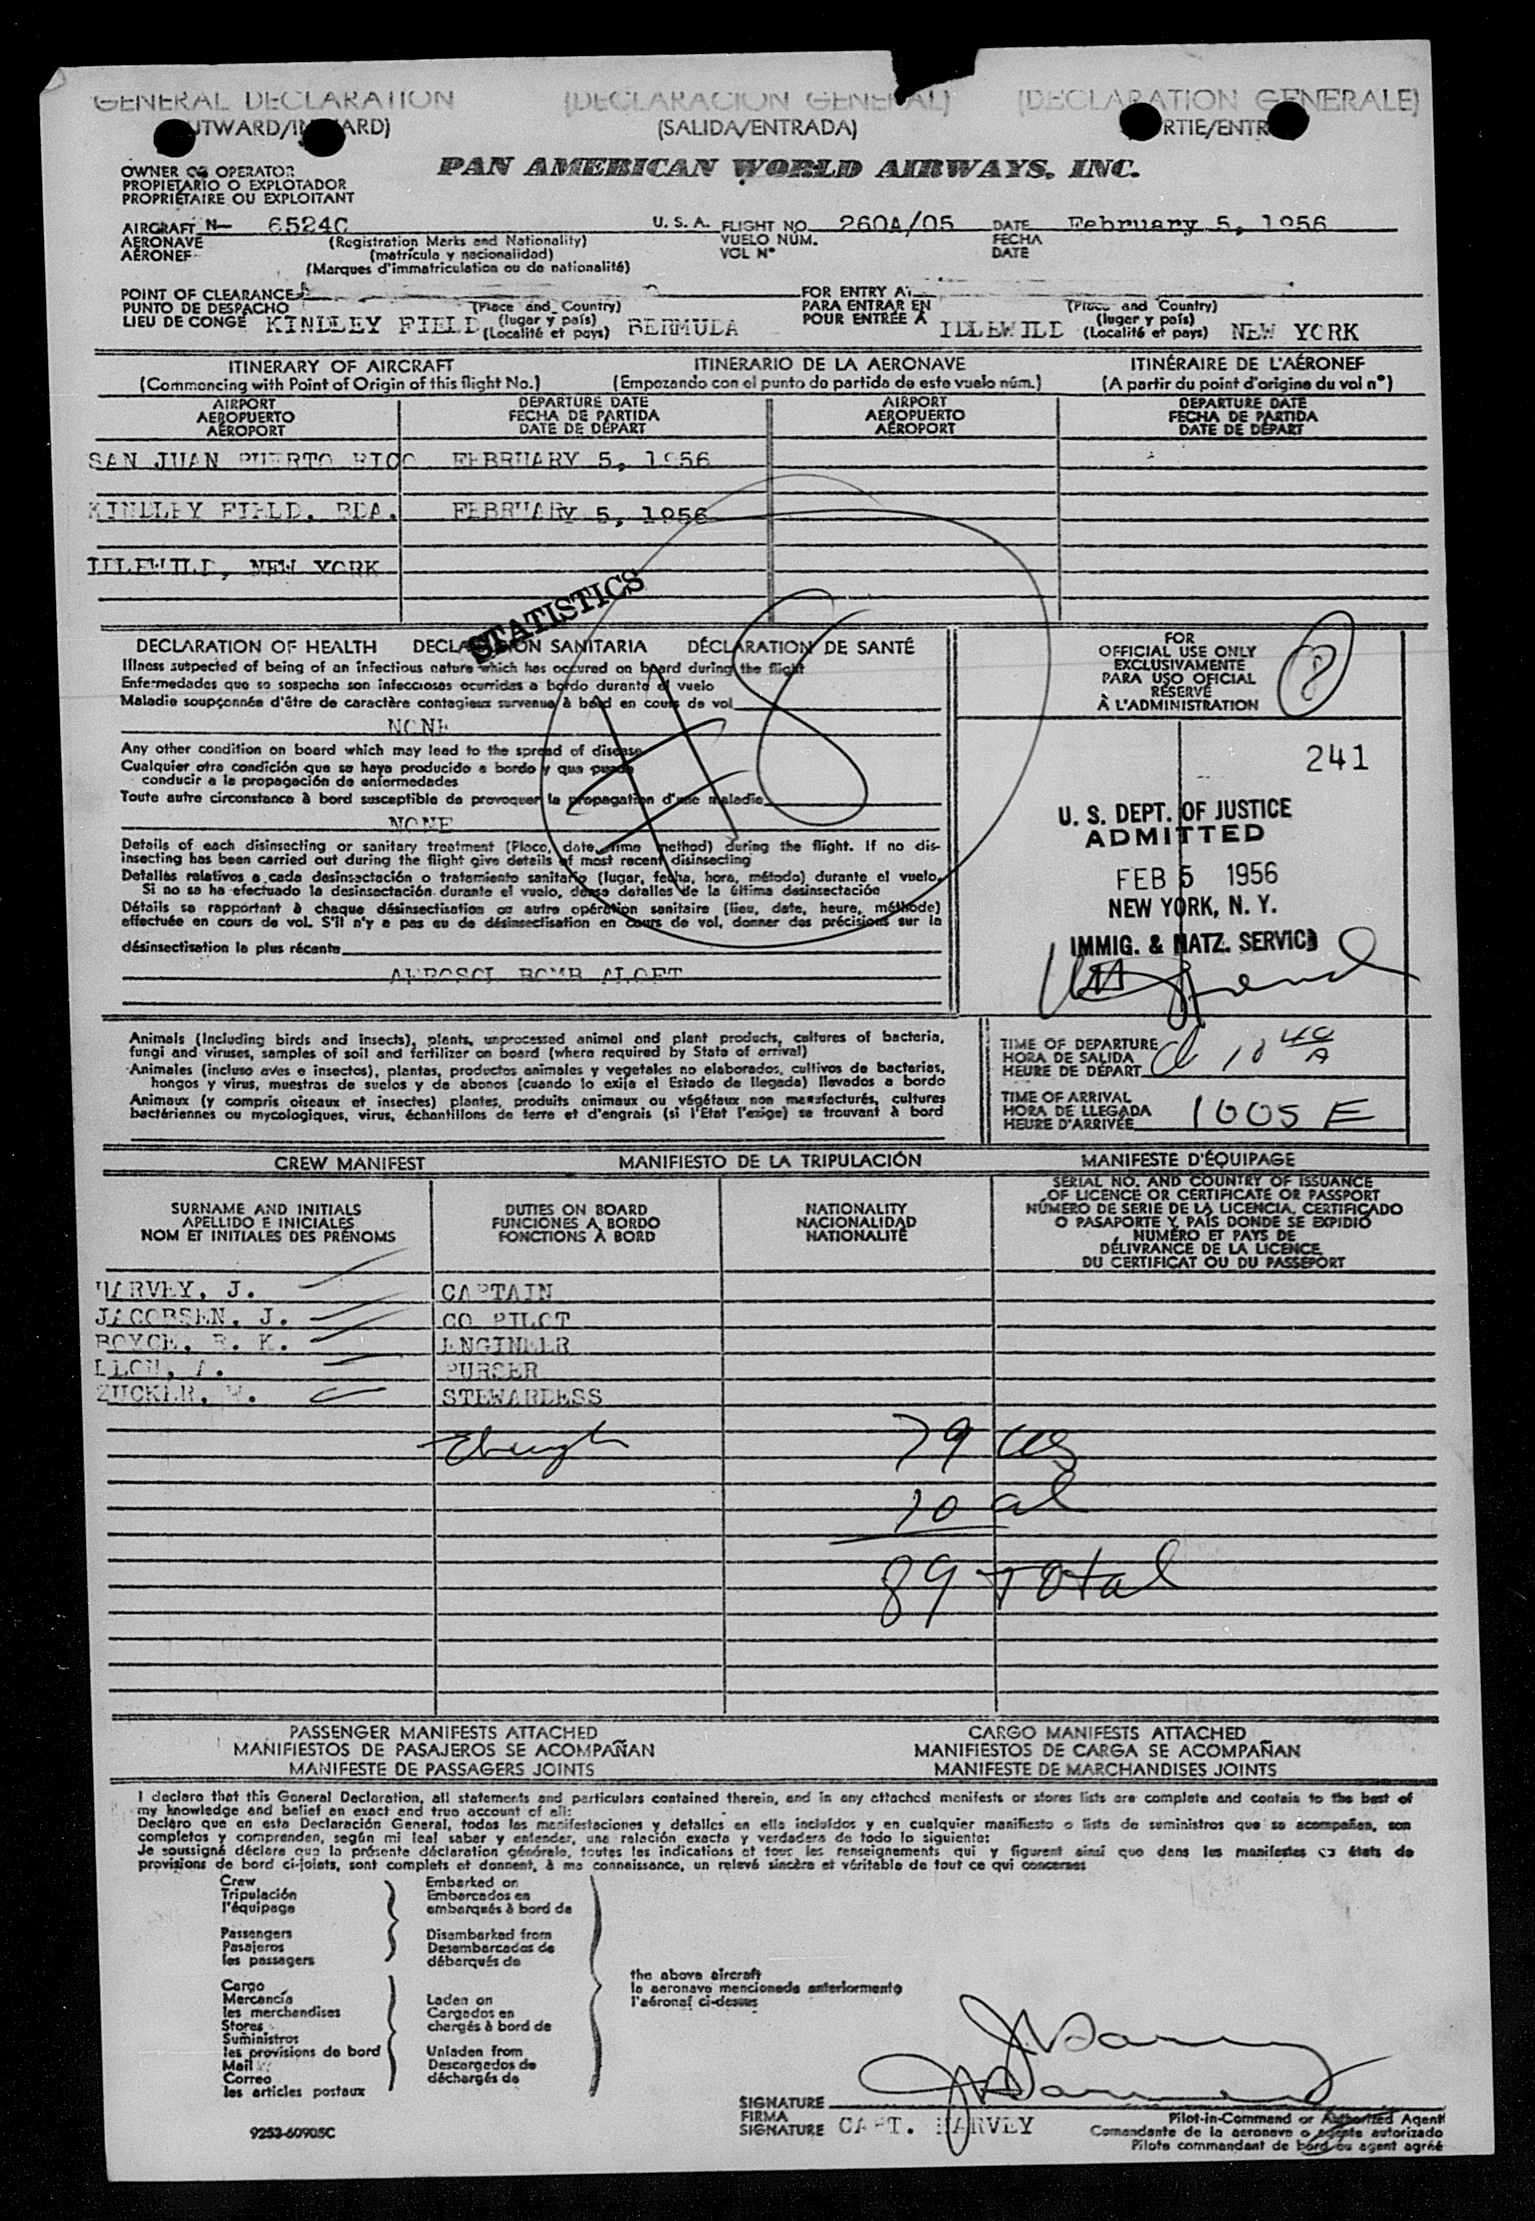 GENERAL DECLARATION (DECLARACION GENERAL) (DECLARATION GENERALE)
(SALIDA/ENTRADA)
OWNER OR OPERATOR
PROPIETARIO O EXPLOTADOR
PROPRIÉTAIRE OU EXPLOITANT
PAN AMERICAN WORLD AIRWAYS, INC.
AIRCRAFT N- 6524C U. S. A. FLIGHT NO. 260A/05 DATE February 5, 1956
AERONAVE (Registration Marks and Nationality) VUELO NÚM. FECHA
AÉRONEF (matrícula y nacionalidad) VOL N° DATE
(Marques d'immatriculation ou de nationalité)
POINT OF CLEARANCE FOR ENTRY AT
PUNTO DE DESPACHO (Place and Country) PARA ENTRAR EN (Place and Country)
LIEU DE CONGÉ KINDLEY FIELD (lugar y país) BERMUDA POUR ENTRÉE À IDLEWILD (lugar y país) NEW YORK
(Localité et pays) (Localité et pays)
ITINERARY OF AIRCRAFT ITINERARIO DE LA AERONAVE ITINÉRAIRE DE L'AÉRONEF
(Commencing with Point of Origin of this flight No.) (Empezando con el punto de partida de este vuelo núm.) (A partir du point d'origine du vol n°)
AIRPORT DEPARTURE DATE AIRPORT DEPARTURE DATE
AEROPUERTO FECHA DE PARTIDA AEROPUERTO FECHA DE PARTIDA
AÉROPORT DATE DE DÉPART AÉROPORT DATE DE DÉPART
SAN JUAN PUERTO RICO FEBRUARY 5, 1956
KINDLEY FIELD, BDA. FEBRUARY 5, 1956
IDLEWILD, NEW YORK
STATISTICS
48
DECLARATION OF HEALTH DECLARACIÓN SANITARIA DÉCLARATION DE SANTÉ
Illness suspected of being of an infectious nature which has occured on board during the flight
Enfermedades que se sospecha son infecciosas ocurridas a bordo durante el vuelo
Maladie soupçonnée d'être de caractère contagieux survenue à bord en cours de vol
NONE
Any other condition on board which may lead to the spread of disease
Cualquier otra condición que se haya producido a bordo y que pueda
conducir a la propagación de enfermedades
Toute autre circonstance à bord susceptible de provoquer la propagation d'une maladie
NONE
Details of each disinsecting or sanitary treatment (Place, date, time method) during the flight. If no dis-
insecting has been carried out during the flight give details of most recent disinsecting
Detalles relativos a cada desinsectación o tratamiento sanitario (lugar, fecha, hora, método) durante el vuelo.
Si no se ha efectuado la desinsectación durante el vuelo, dense detalles de la última desinsectación
Détails se rapportant à chaque désinsectisation ou autre opération sanitaire (lieu, date, heure, méthode)
effectuée en cours de vol. S'il n'y a pas eu de désinsectisation en cours de vol, donner des précisions sur la
désinsectisation la plus récente
AEROSOL BOMB ALOFT
FOR
OFFICIAL USE ONLY
EXCLUSIVAMENTE
PARA USO OFICIAL
RÉSERVÉ
À L'ADMINISTRATION
8
241
U. S. DEPT. OF JUSTICE
ADMITTED
FEB 5 1956
NEW YORK, N. Y.
IMMIG. & NATZ. SERVICE
Animals (Including birds and insects), plants, unprocessed animal and plant products, cultures of bacteria,
fungi and viruses, samples of soil and fertilizer on board (where required by State of arrival)
Animales (incluso aves e insectos), plantas, productos animales y vegetales no elaborados, cultivos de bacterias,
hongos y virus, muestras de suelos y de abonos (cuando lo exija el Estado de llegada) llevados a bordo
Animaux (y compris oiseaux et insectes) plantes, produits animaux ou végétaux non manufacturés, cultures
bactériennes ou mycologiques, virus, échantillons de terre et d'engrais (si l'Etat l'exige) se trouvant à bord
TIME OF DEPARTURE
HORA DE SALIDA
HEURE DE DÉPART 10 40 A
TIME OF ARRIVAL
HORA DE LLEGADA
HEURE D'ARRIVÉE 1005 E
CREW MANIFEST MANIFIESTO DE LA TRIPULACIÓN MANIFESTE D'ÉQUIPAGE
SURNAME AND INITIALS DUTIES ON BOARD NATIONALITY SERIAL NO. AND COUNTRY OF ISSUANCE
APELLIDO E INICIALES FUNCIONES A BORDO NACIONALIDAD OF LICENCE OR CERTIFICATE OR PASSPORT
NOM ET INITIALES DES PRÉNOMS FONCTIONS À BORD NATIONALITÉ NÚMERO DE SERIE DE LA LICENCIA, CERTIFICADO
O PASAPORTE Y PAÍS DONDE SE EXPIDIÓ
NUMÉRO ET PAYS DE
DÉLIVRANCE DE LA LICENCE
DU CERTIFICAT OU DU PASSEPORT
HARVEY, J. CAPTAIN
JACOBSEN, J. CO PILOT
BOYCE, R. K. ENGINEER
LEON, A. PURSER
ZUCKER, M. STEWARDESS
79 US
10 al
89 Total
PASSENGER MANIFESTS ATTACHED CARGO MANIFESTS ATTACHED
MANIFIESTOS DE PASAJEROS SE ACOMPAÑAN MANIFIESTOS DE CARGA SE ACOMPAÑAN
MANIFESTE DE PASSAGERS JOINTS MANIFESTE DE MARCHANDISES JOINTS
I declare that this General Declaration, all statements and particulars contained therein, and in any attached manifests or stores lists are complete and contain to the best of
my knowledge and belief an exact and true account of all:
Declaro que en esta Declaración General, todas las manifestaciones y detalles en ella incluídos y en cualquier manifiesto o lista de suministros que se acompañan, son
completos y comprenden, según mi leal saber y entender, una relación exacta y verdadera de todo lo siguiente:
Je soussigné déclare que la présente déclaration générale, toutes les indications et tous les renseignements qui y figurent ainsi que dans les manifestes ou états de
provisions de bord ci-joints, sont complets et donnent, à ma connaissance, un relevé sincère et véritable de tout ce qui concernes
Crew Embarked on
Tripulación Embarcados en
l'équipage embarqués à bord de
Passengers Disembarked from
Pasajeros Desembarcados de
les passagers débarqués de
the above aircraft
la aeronave mencionada anteriormente
l'aéronef ci-dessus
Cargo
Mercancía Laden on
les merchandises Cargados en
Stores chargés à bord de
Suministros
les provisions de bord Unladen from
Mail Descargados de
Correo déchargés de
les articles postaux
J Harvey
J Harvey
SIGNATURE
FIRMA
SIGNATURE CAPT. HARVEY
Pilot-in-Command or Authorized Agent
Comandante de la aeronave o agente autorizado
Pilote commandant de bord ou agent agréé
9253-60905C